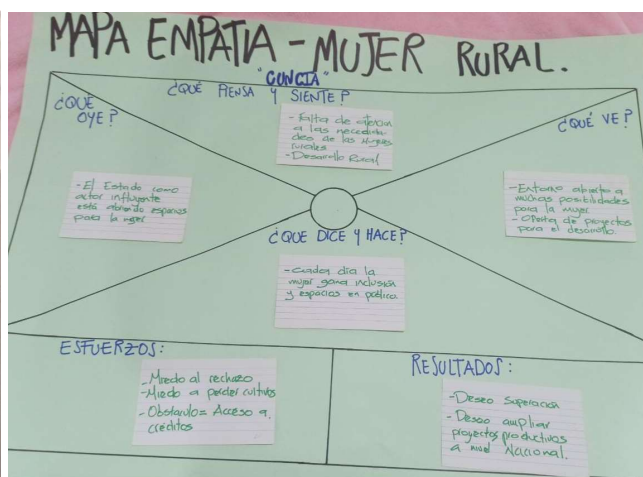 MAPA EMPATIA - MUJER RURAL.
"CUNCIA"
¿QUÉ PIENSA Y SIENTE?
- Falta de atención
a las necesida
des de las Mujeres
rurales
- Desarrollo Rural
¿QUÉ
OYE?
- El Estado como
actor influyente
está abriendo espacios
para la mujer
¿QUÉ VE?
- Entorno abierto a
muchas posibilidades
para la mujer
- Oferta de proyectos
para el desarrollo.
¿QUE DICE Y HACE?
- Cada día la
mujer gana inclusión
y espacios en política
ESFUERZOS:
- Miedo al rechazo
- Miedo a perder cultivos
- Obstaculo = Acceso a
créditos
RESULTADOS:
- Deseo Superación
- Deseo ampliar
proyectos productivos
a nivel Nacional.